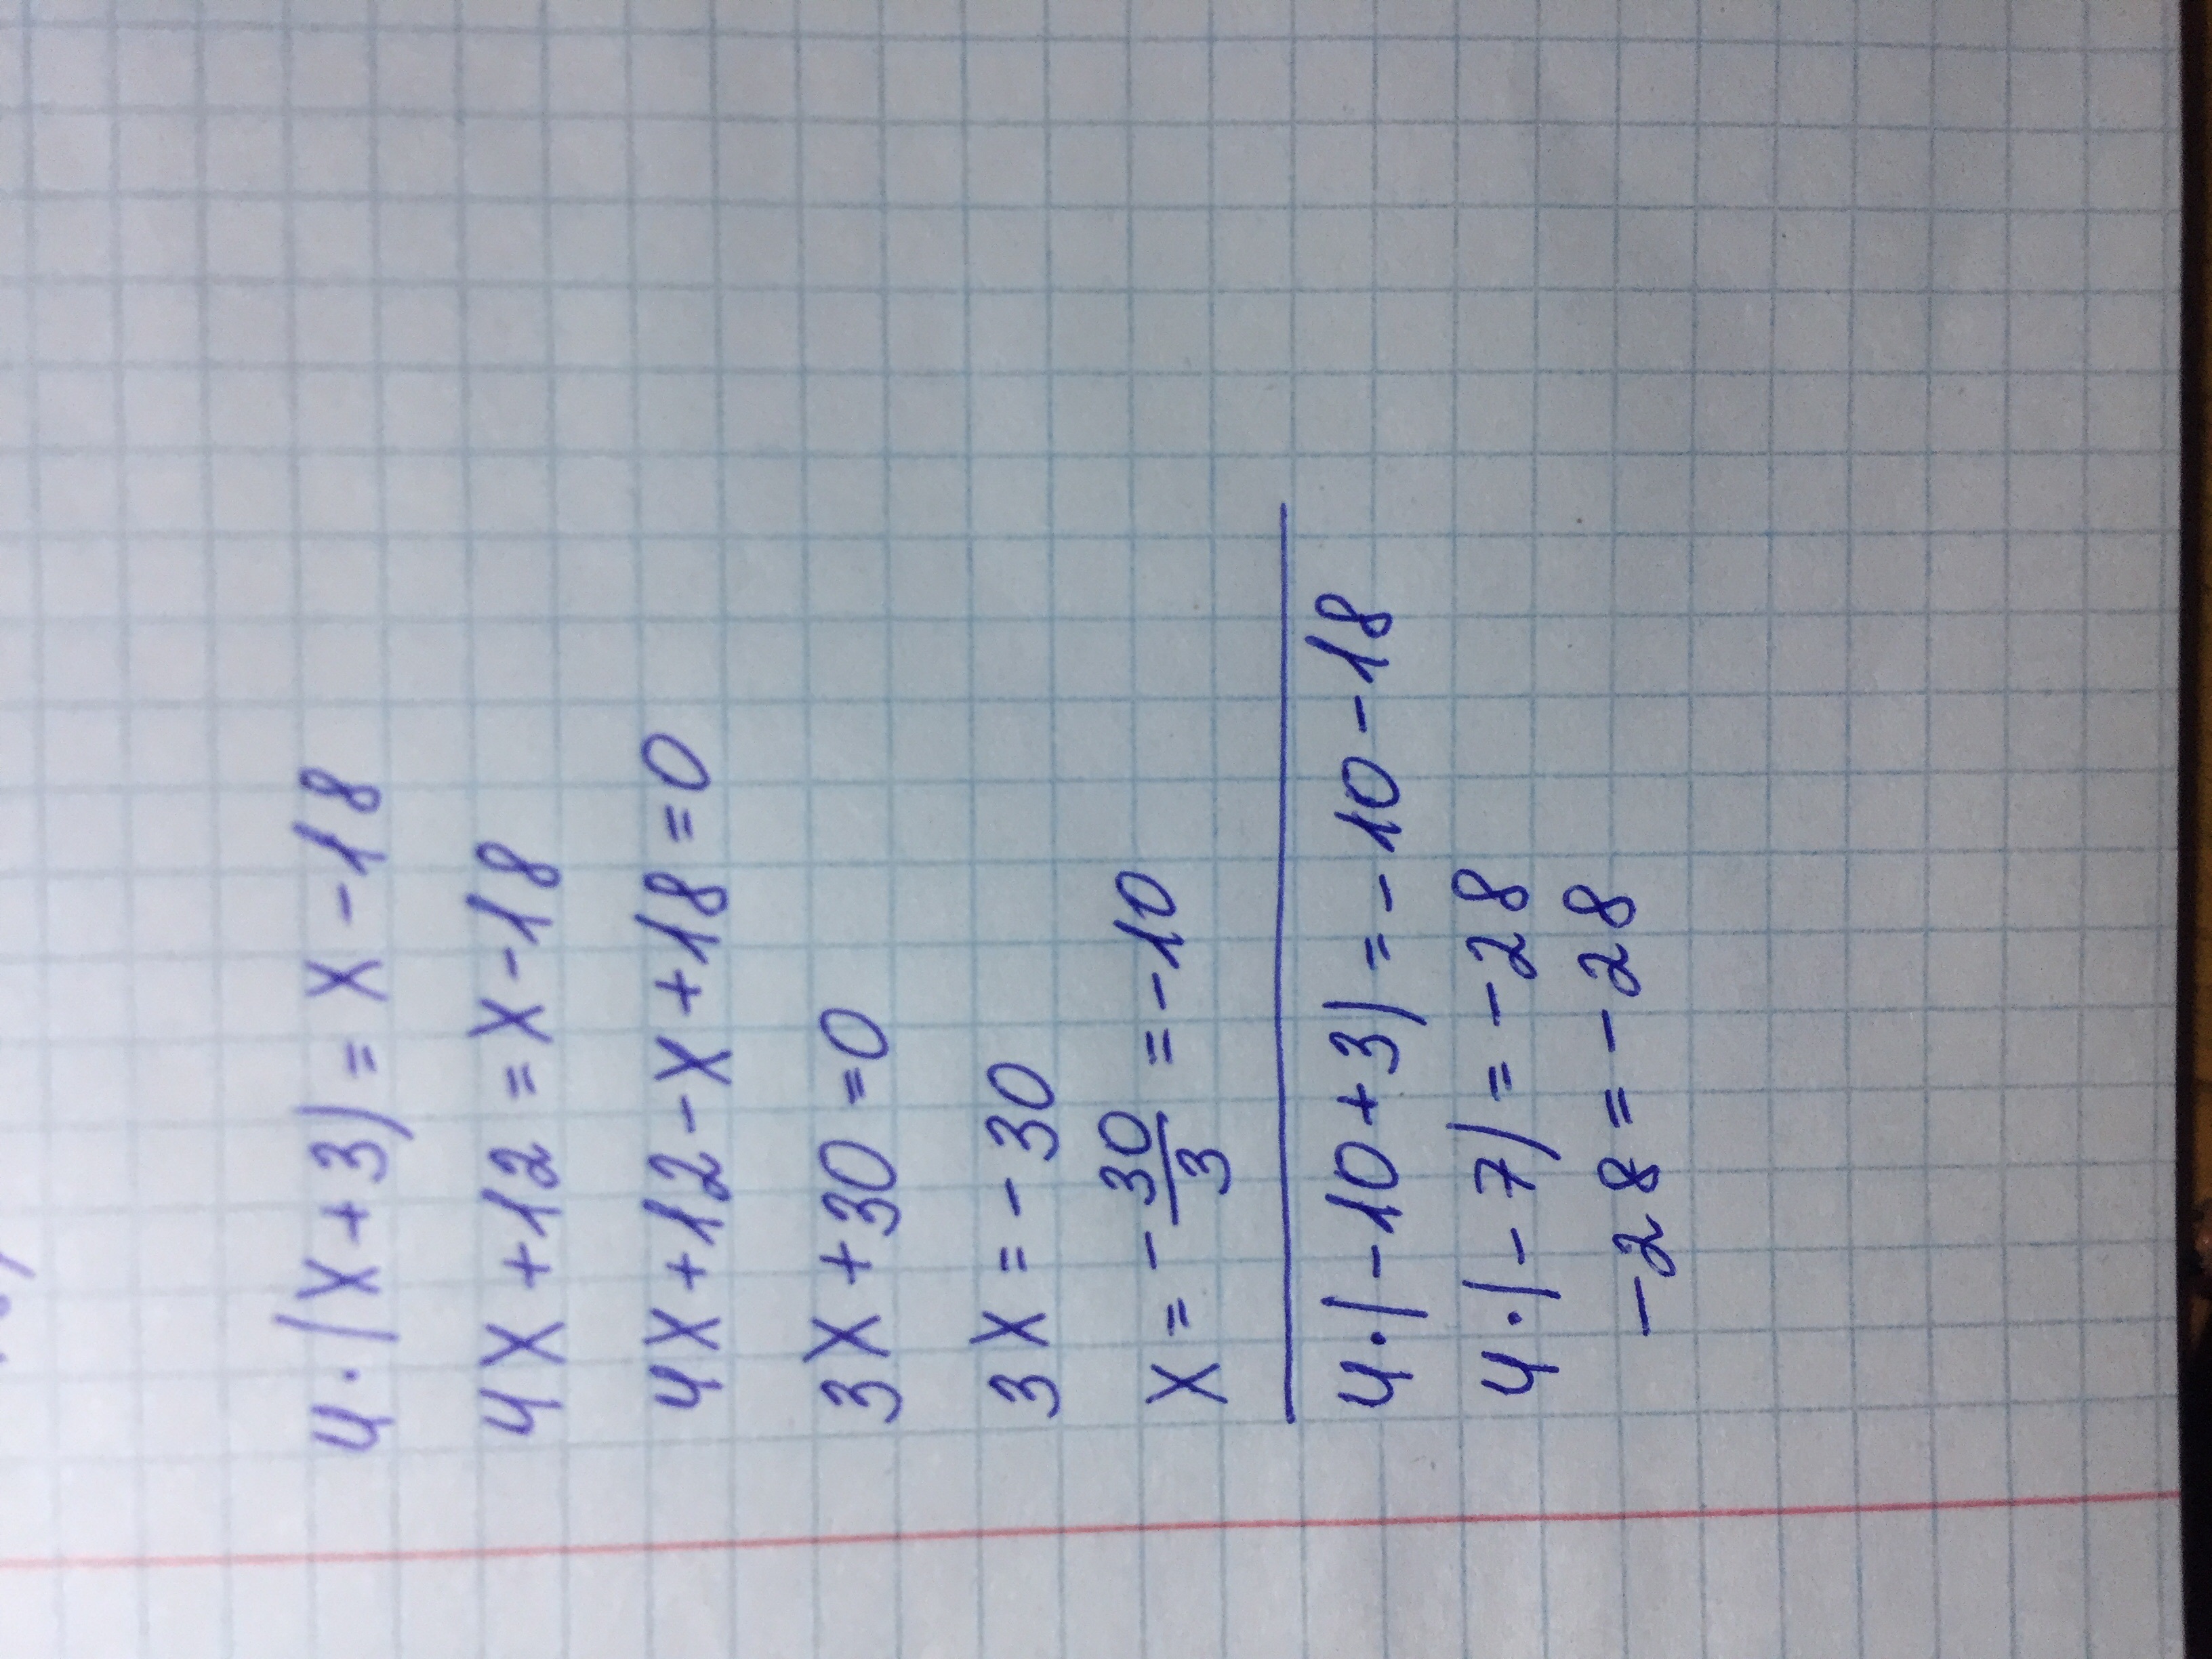 4·(x+3)=x-18
4x+12=x-18
4x+12-x+18=0
3x+30=0
3x=-30
x=-30/3=-10
4·(-10+3)=-10-18
4·(-7)=-28
-28=-28